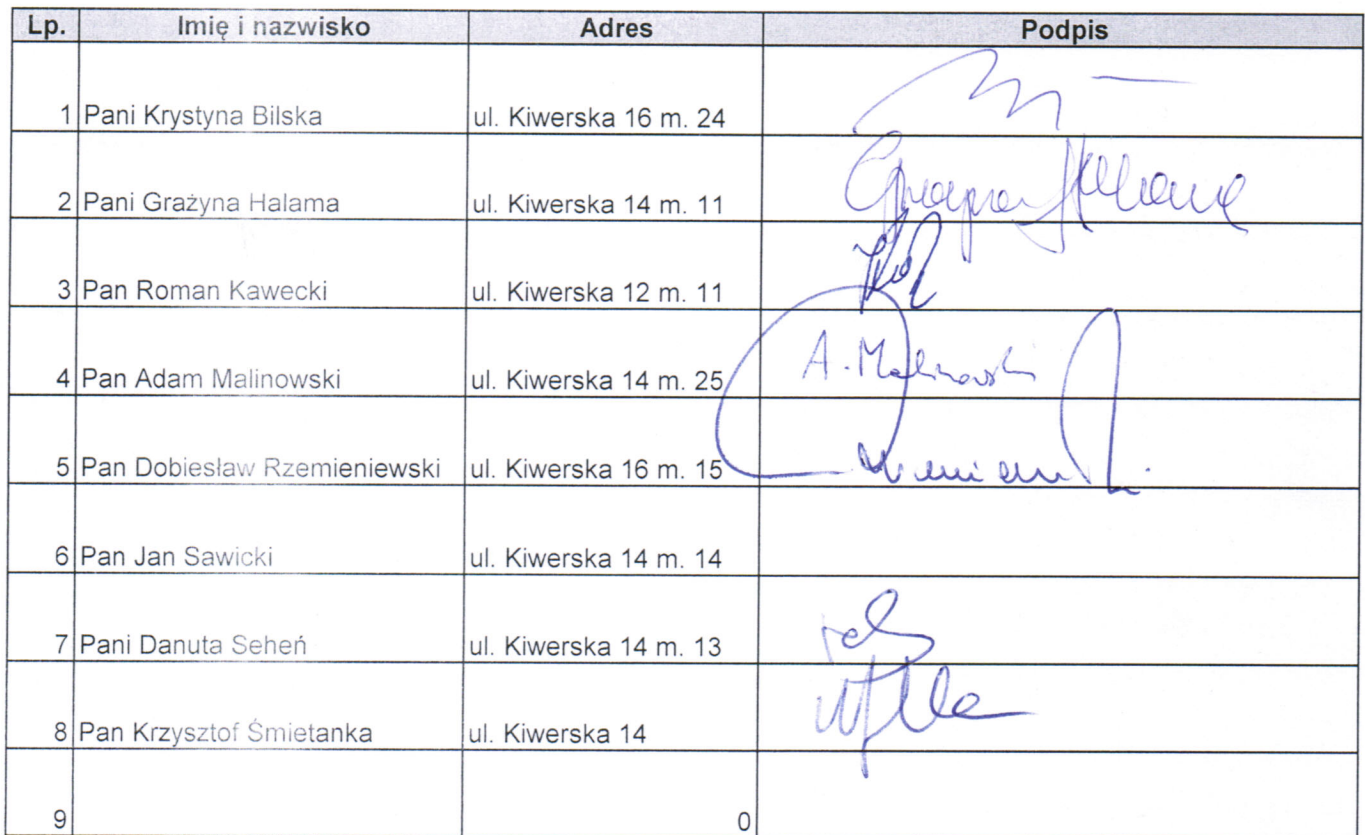 Lp. Imię i nazwisko Adres Podpis
1 Pani Krystyna Bilska ul. Kiwerska 16 m. 24
2 Pani Grażyna Halama ul. Kiwerska 14 m. 11 Grażyna Halama
3 Pan Roman Kawecki ul. Kiwerska 12 m. 11
4 Pan Adam Malinowski ul. Kiwerska 14 m. 25 A. Malinowski
5 Pan Dobiesław Rzemieniewski ul. Kiwerska 16 m. 15
6 Pan Jan Sawicki ul. Kiwerska 14 m. 14
7 Pani Danuta Seheń ul. Kiwerska 14 m. 13
8 Pan Krzysztof Śmietanka ul. Kiwerska 14
9 0